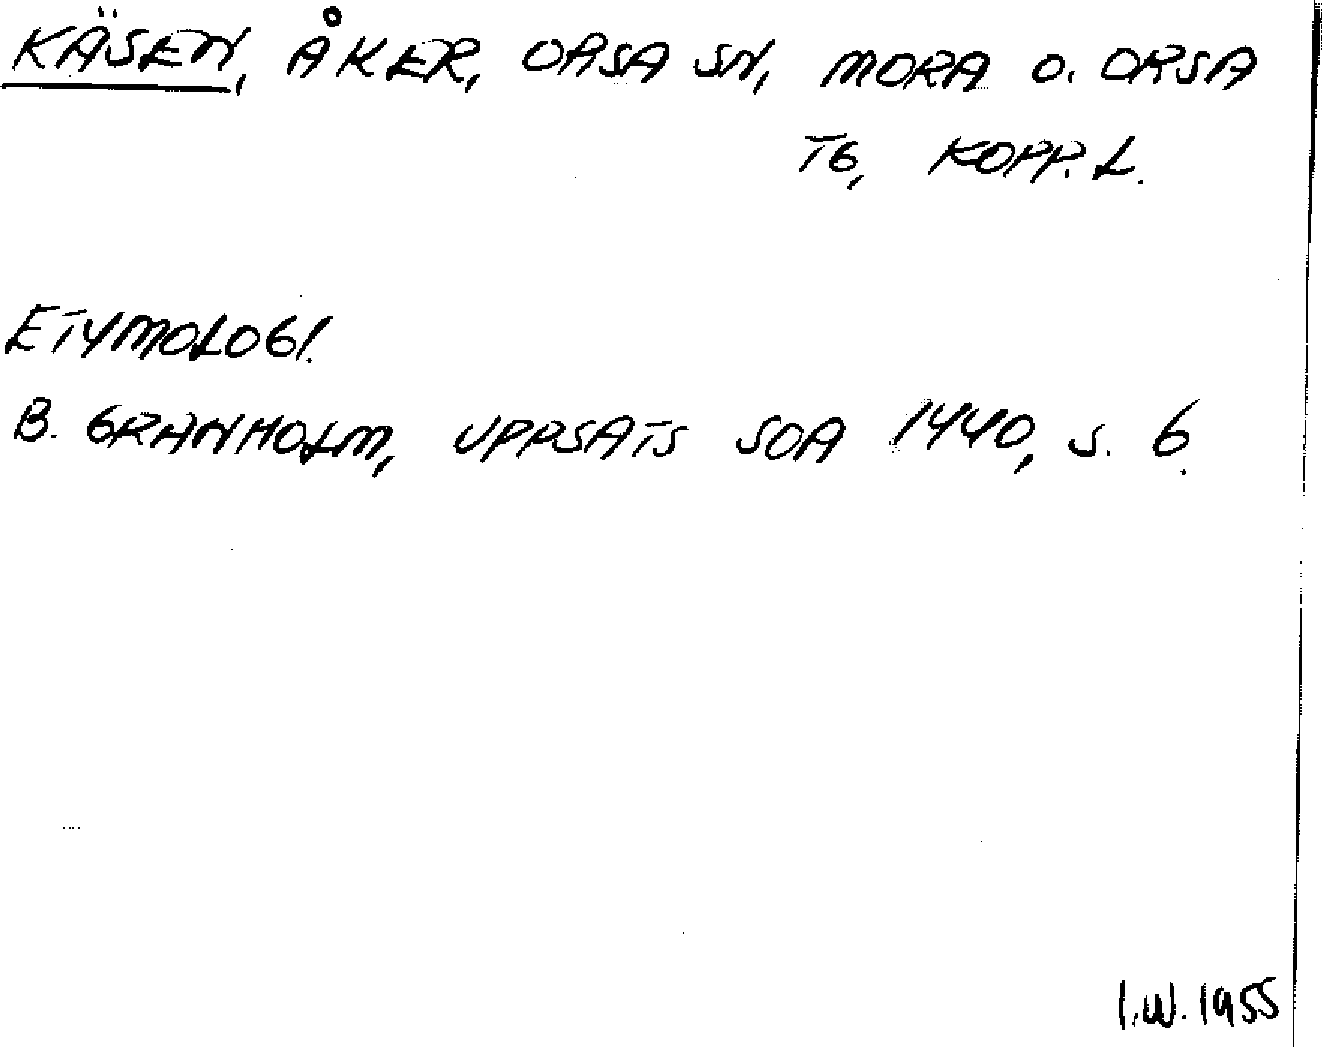 KÄSEN, ÅKER, ORSA SN, MORA O. ORSA
TG, KOPP. L.
ETYMOLOGI.
B. GRANHOLM, UPPSATS SOA 1440, S. 6.
I.W. 1955